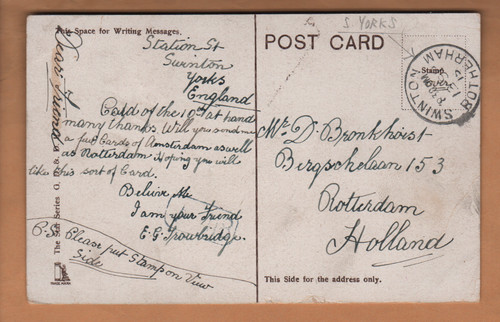 This Space for Writing Messages.
Station St
Swinton
Yorks
England
Dear Friend
Card of the 10th at hand
many thanks Will you send me
a few Cards of Amsterdam as well
as Rotterdam Hoping you will
like this sort of Card.
Believe Me
I am your Friend
E. G. Trowbridge.
P.S. Please put Stamp on View
Side
The Star Series
S YORKS
POST CARD
Stamp
over
SWINTON
ROTHERHAM
Mr. D. Bronkhorst
Bergschelaan 153
Rotterdam
Holland
This Side for the address only.